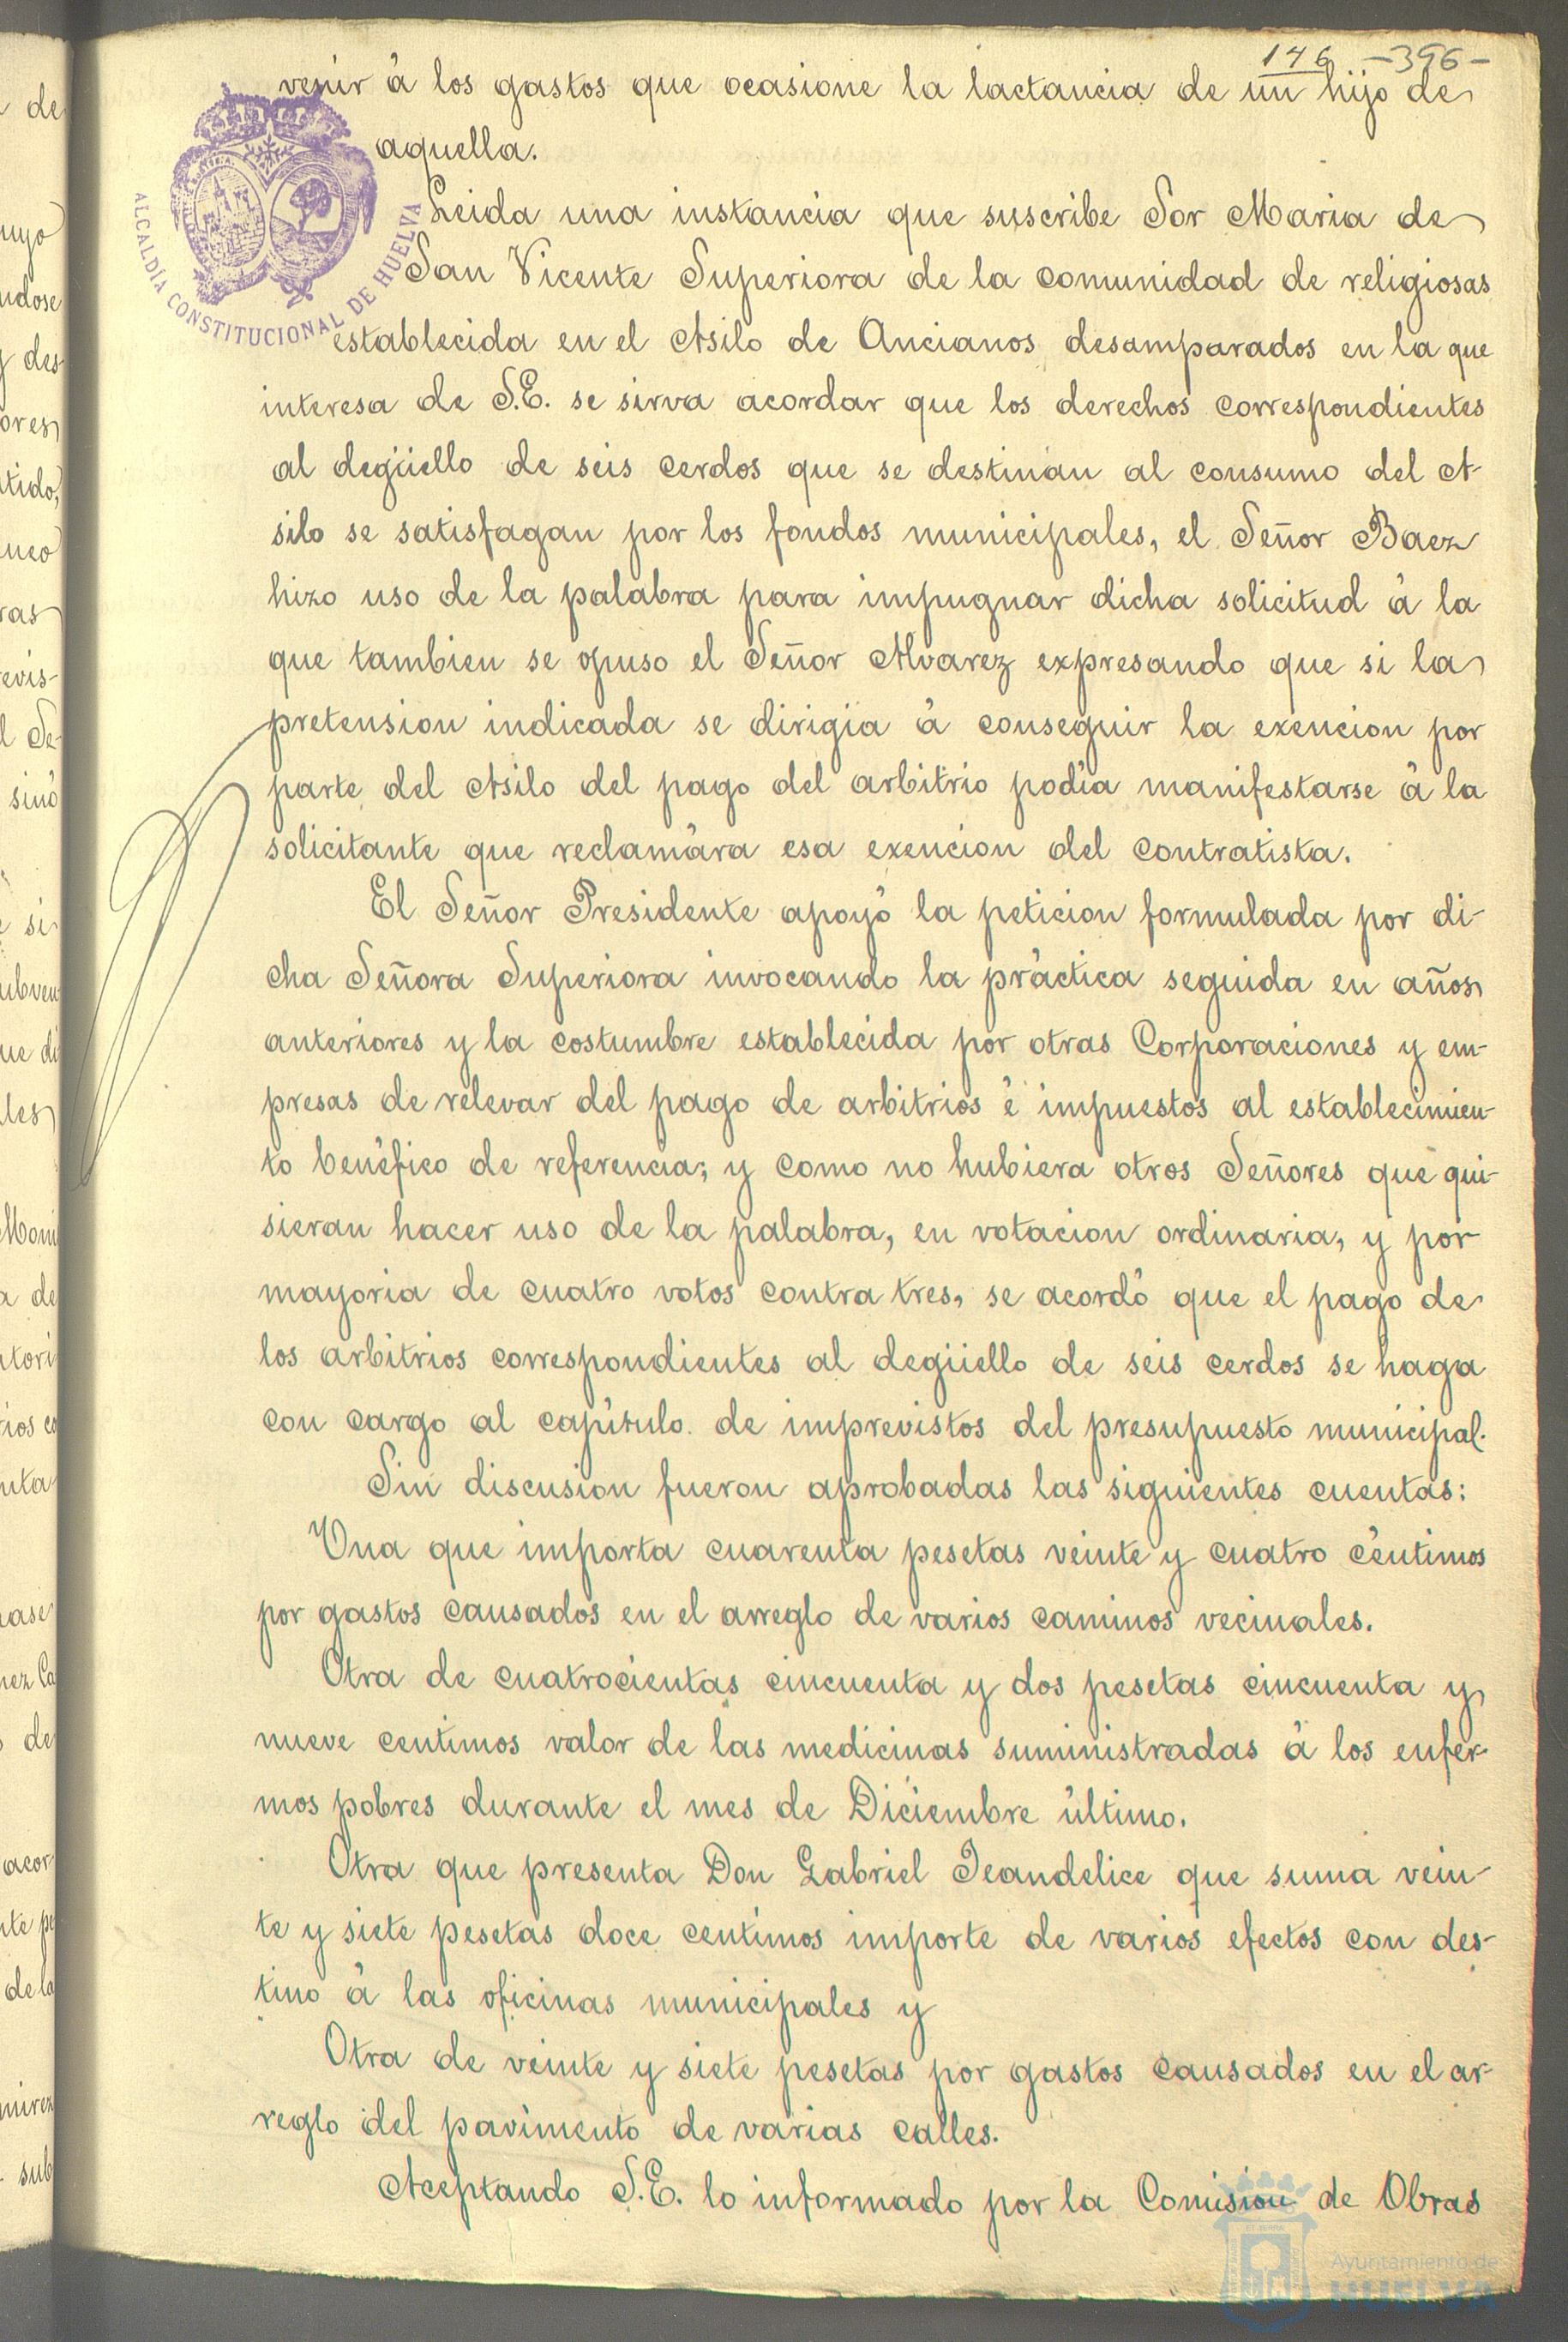 146 -396-
venir á los gastos que ocasione la lactancia de un hijo de
aquella.
Leida una instancia que suscribe Sor Maria de
San Vicente Superiora de la comunidad de religiosas
establecida en el Asilo de Ancianos desamparados en la que
interesa de S.E. se sirva acordar que los derechos correspondientes
al degüello de seis cerdos que se destinan al consumo del A-
silo se satisfagan por los fondos municipales, el Señor Baez
hizo uso de la palabra para impugnar dicha solicitud á la
que tambien se opuso el Señor Alvarez expresando que si la
pretension indicada se dirigia á conseguir la exencion por
parte del Asilo del pago del arbitrio podia manifestarse á la
solicitante que reclamára esa exencion del contratista.
El Señor Presidente apoyó la peticion formulada por di-
cha Señora Superiora invocando la práctica seguida en años
anteriores y la costumbre establecida por otras Corporaciones y em-
presas de relevar del pago de arbitrios é impuestos al establecimien-
to benéfico de referencia; y como no hubiera otros Señores que qui-
sieran hacer uso de la palabra, en votacion ordinaria, y por
mayoria de cuatro votos contra tres, se acordó que el pago de
los arbitrios correspondientes al degüello de seis cerdos se haga
con cargo al capítulo de imprevistos del presupuesto municipal.
Sin discusion fueron aprobadas las siguientes cuentas:
Una que importa cuarenta pesetas veinte y cuatro céntimos
por gastos causados en el arreglo de varios caminos vecinales.
Otra de cuatrocientas cincuenta y dos pesetas cincuenta y
nueve centimos valor de las medicinas suministradas á los enfer-
mos pobres durante el mes de Diciembre último.
Otra que presenta Don Gabriel Jeandelice que suma vein-
te y siete pesetas doce centimos importe de varios efectos con des-
tino á las oficinas municipales y
Otra de veinte y siete pesetas por gastos causados en el ar-
reglo del pavimento de varias calles.
Aceptando S.E. lo informado por la Comision de Obras
ALCALDIA CONSTITUCIONAL DE HUELVA
Ayuntamiento de
HUELVA